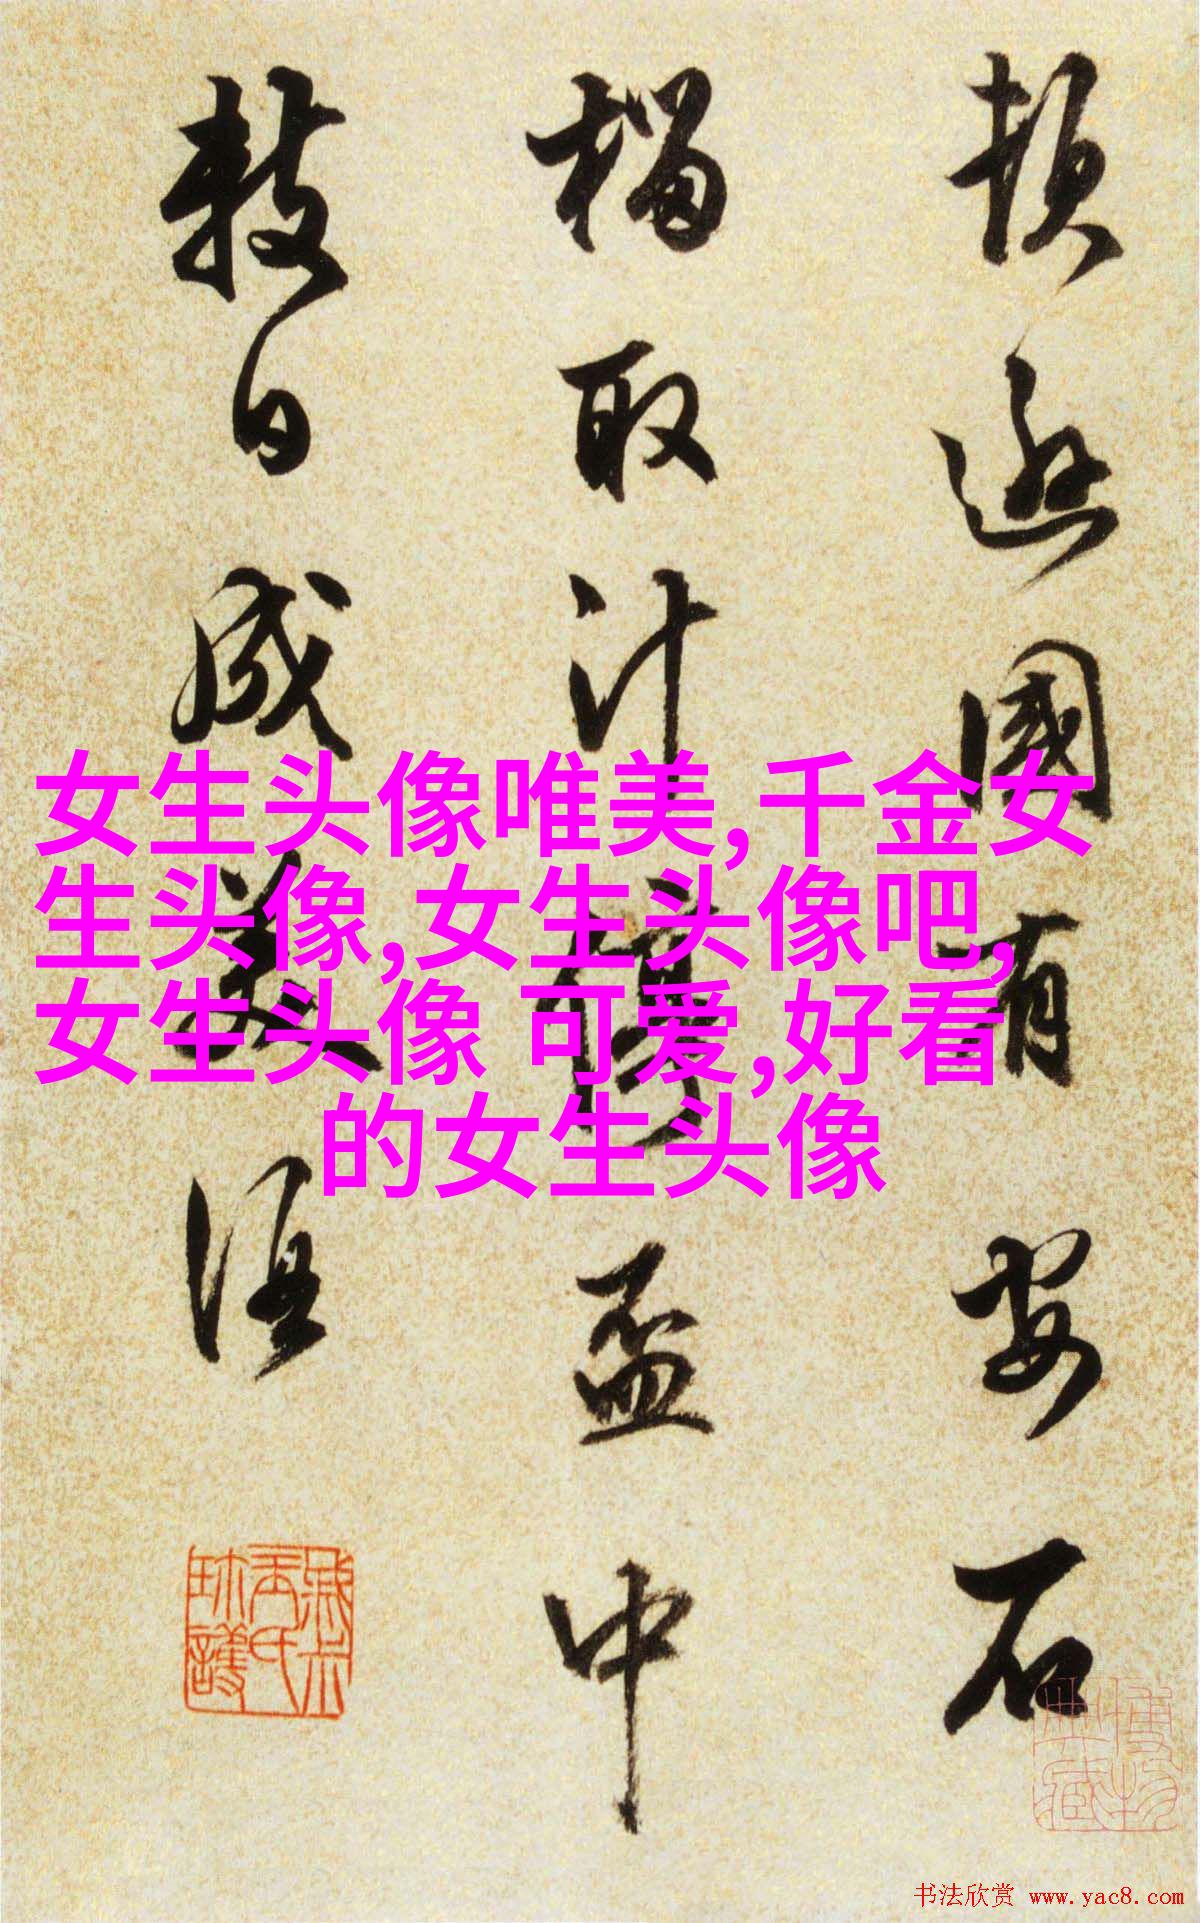 頓遜國有安石
榴取汁停盃中
數日成美酒
女生头像唯美,千金女
生头像,女生头像吧,
女生头像 可爱,好看
的女生头像
书法欣赏 www.yac8.com